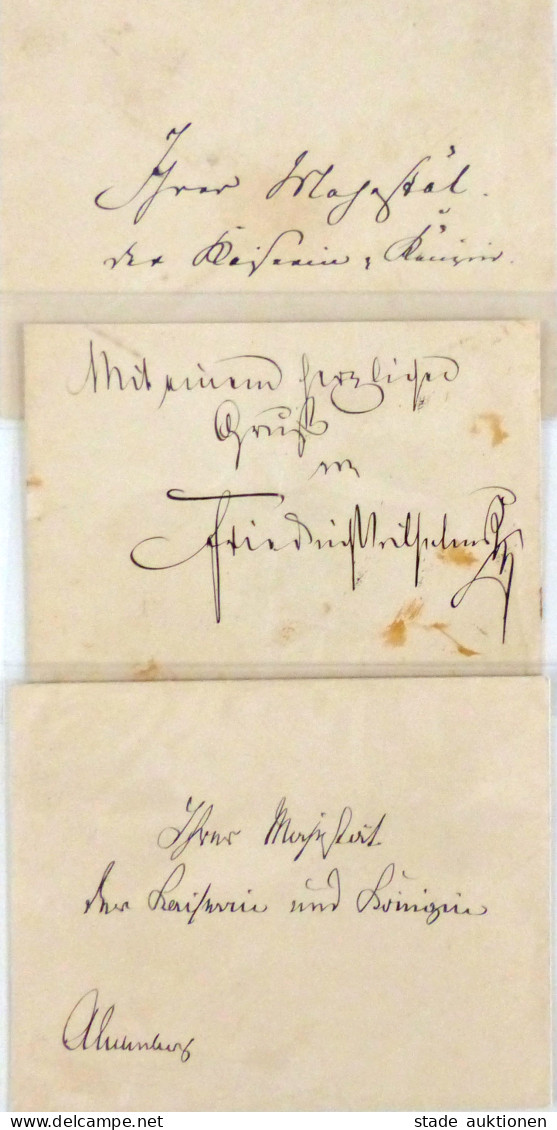 Ihrer Majestät
der Kaiserin = Königin.
Mit einem herzlichen
Gruß
von
Friedrich Wilhelm
Ihrer Majestät
der Kaiserin und Königin
www.delcampe.net
stade auktionen